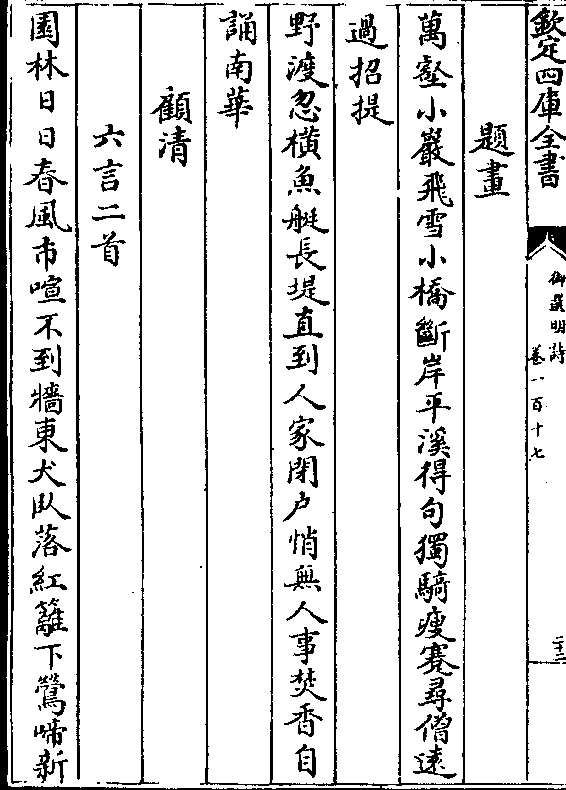 欽定四庫全書
御選明詩
卷一百十七
二十二
題畫
萬壑小巖飛雪小橋斷岸平溪得句獨騎瘦蹇尋僧遠
過招提
野渡忽橫魚艇長堤直到人家閉户悄無人事焚香自
誦南華
顧清
六言二首
園林日日春風市喧不到牆東犬臥落紅籬下鶯啼新